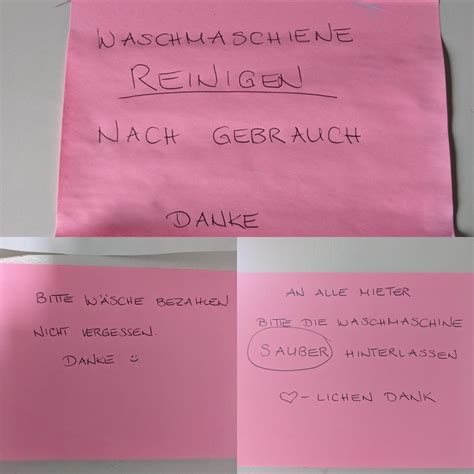 WASCHMASCHIENE
REINIGEN
NACH GEBRAUCH
DANKE
BITTE WÄSCHE BEZAHLEN
NICHT VERGESSEN.
DANKE ☺
AN ALLE MIETER
BITTE DIE WASCHMASCHINE
SAUBER HINTERLASSEN
♡-LICHEN DANK